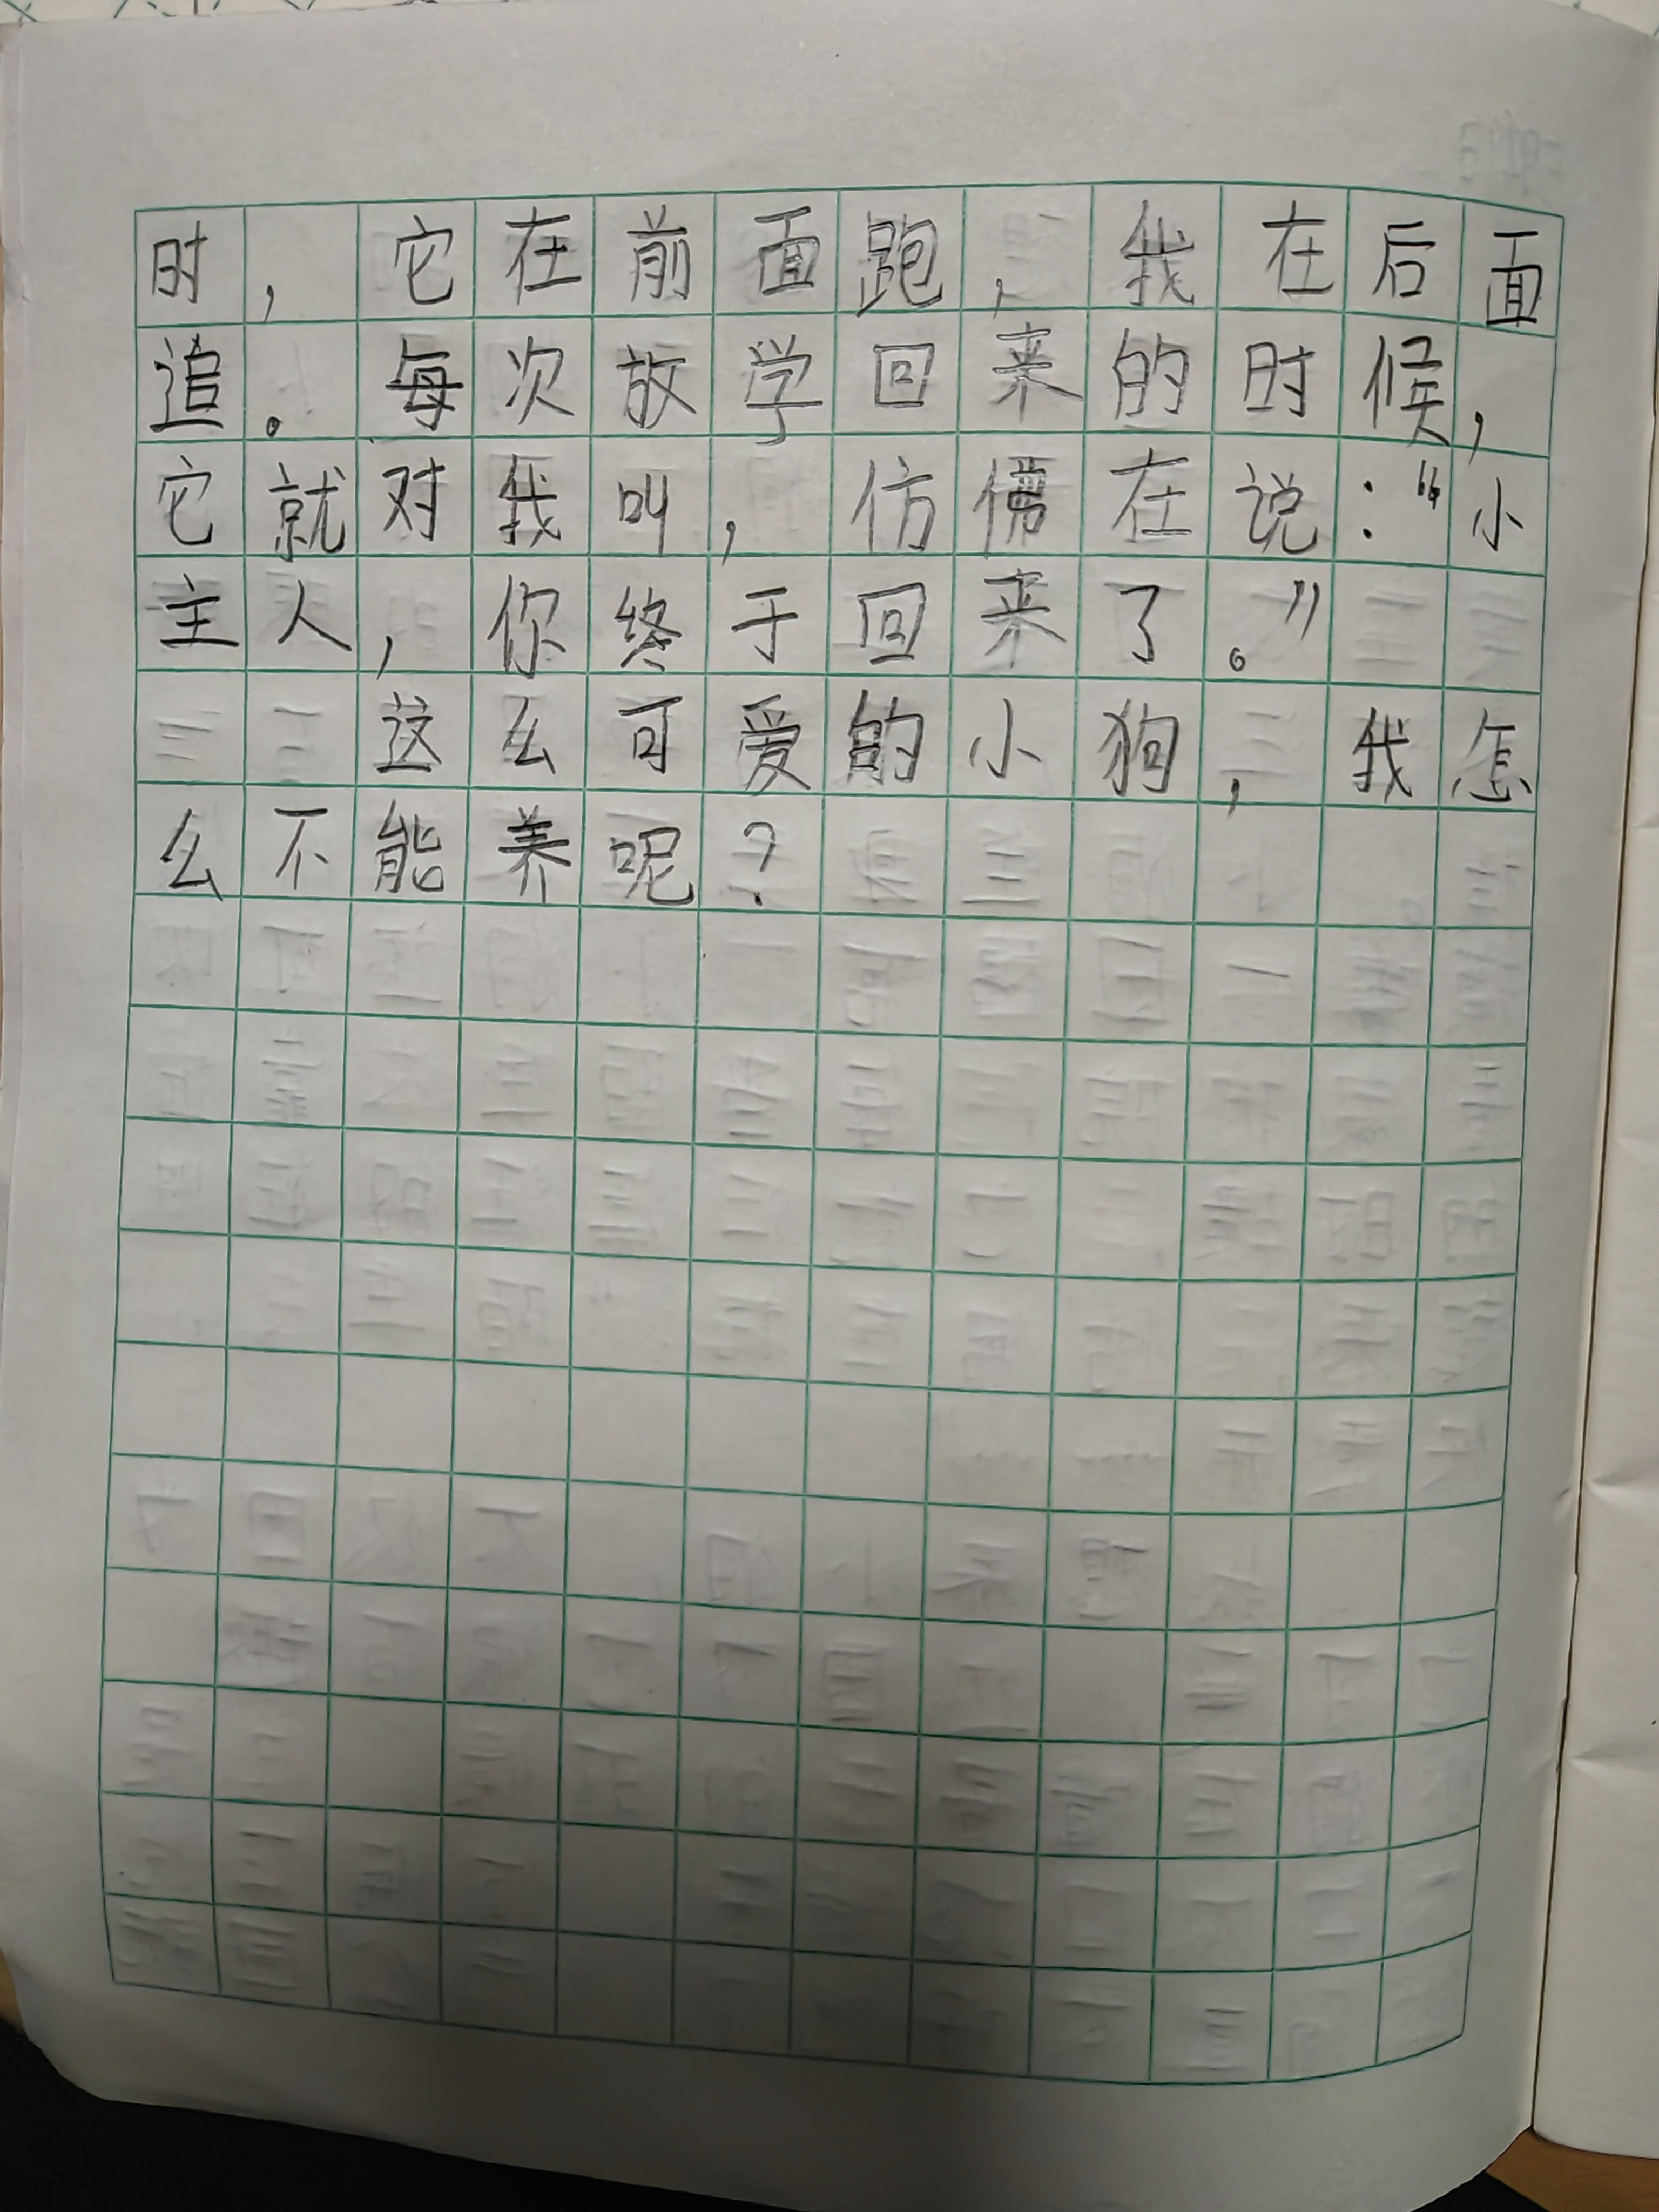 时，它在前面跑，我在后面
追。每次放学回来的时候，
它就对我叫，仿佛在说：“小
主人，你终于回来了。”
这么可爱的小狗，我怎
么不能养呢？